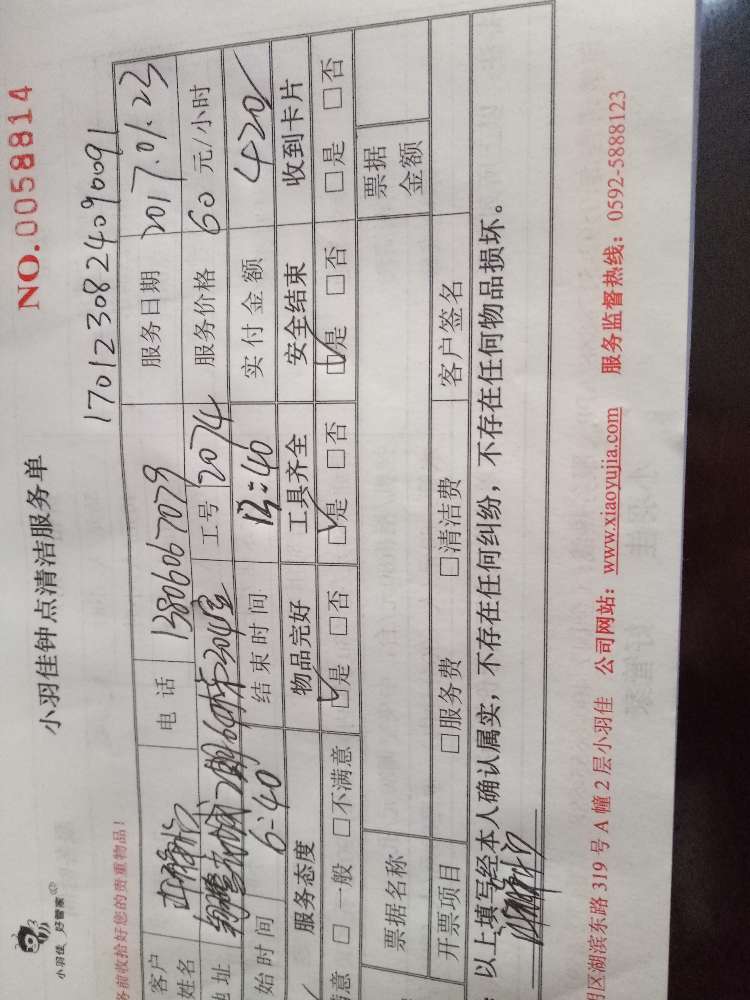 小羽佳 好管家
小羽佳钟点清洁服务单
NO.0058814
务前收拾好您的贵重物品！
1701230824090091
客户姓名 电话 13806067079 服务日期 2017.01.23
地址 2期 204室 工号 2074 服务价格 60 元/小时
始时间 6:40 结束时间 13:40 实付金额 420
服务态度 物品完好 工具齐全 安全结束 收到卡片
意 □ 一般 □不满意 □是 □否 □是 □否 □是 □否 □是 □否
票据名称 票据金额
开票项目 □服务费 □清洁费 客户签名
：以上填写经本人确认属实，不存在任何纠纷，不存在任何物品损坏。
区湖滨东路 319 号 A 幢 2 层小羽佳 公司网站：www.xiaoyujia.com 服务监督热线：0592-5888123